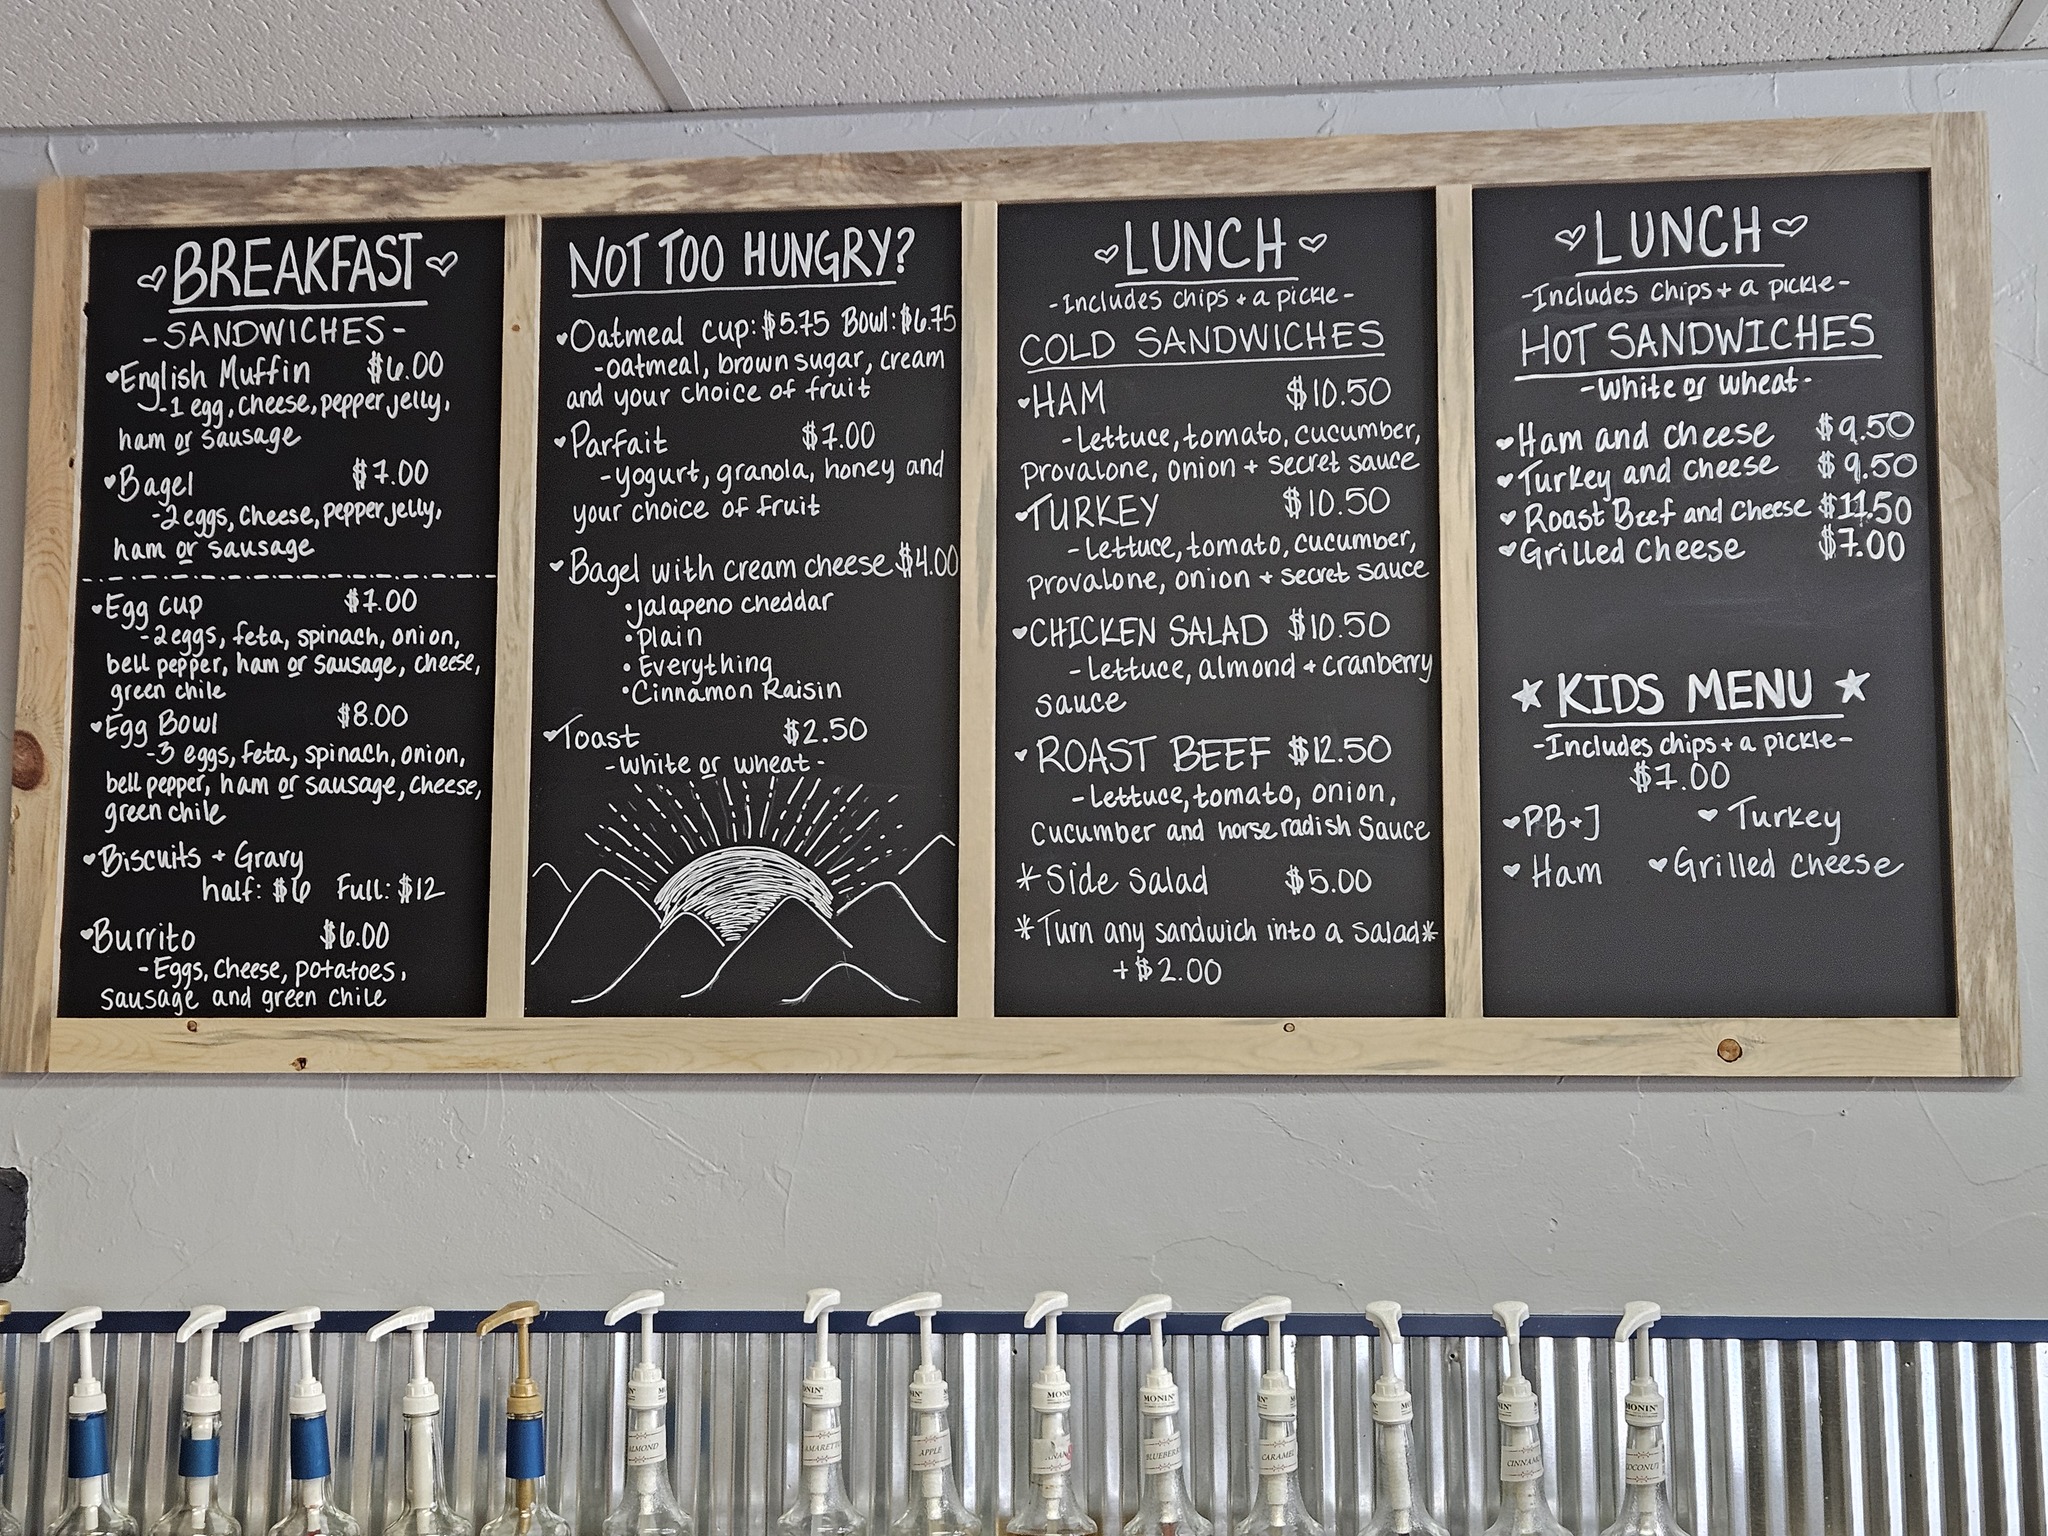 BREAKFAST
-SANDWICHES-
English Muffin $6.00
-1 egg, cheese, pepper jelly,
ham or sausage
Bagel $7.00
-2 eggs, cheese, pepper jelly,
ham or sausage
Egg cup $7.00
-2 eggs, feta, spinach, onion,
bell pepper, ham or sausage, cheese,
green chile
Egg Bowl $8.00
-3 eggs, feta, spinach, onion,
bell pepper, ham or sausage, cheese,
green chile
Biscuits + Gravy
half: $6 Full: $12
Burrito $6.00
-Eggs, cheese, potatoes,
sausage and green chile
NOT TOO HUNGRY?
Oatmeal cup: $5.75 Bowl: $6.75
-oatmeal, brown sugar, cream
and your choice of fruit
Parfait $7.00
-yogurt, granola, honey and
your choice of fruit
Bagel with cream cheese $4.00
•jalapeno cheddar
•plain
•Everything
•Cinnamon Raisin
Toast $2.50
-white or wheat-
LUNCH
-Includes chips + a pickle-
COLD SANDWICHES
HAM $10.50
-Lettuce, tomato, cucumber,
provalone, onion + secret sauce
TURKEY $10.50
-Lettuce, tomato, cucumber,
provalone, onion + secret sauce
CHICKEN SALAD $10.50
-Lettuce, almond + cranberry
sauce
ROAST BEEF $12.50
-Lettuce, tomato, onion,
cucumber and horse radish sauce
*Side salad $5.00
*Turn any sandwich into a salad*
+$2.00
LUNCH
-Includes chips + a pickle-
HOT SANDWICHES
-white or wheat-
Ham and cheese $9.50
Turkey and cheese $9.50
Roast Beef and cheese $11.50
Grilled cheese $7.00
★ KIDS MENU ★
-Includes chips + a pickle-
$7.00
PB+J Turkey
Ham Grilled cheese
MONIN MONIN MONIN MONIN MONIN
ALMOND
AMARETTO
APPLE
BLUEBERRY
CARAMEL
COCONUT